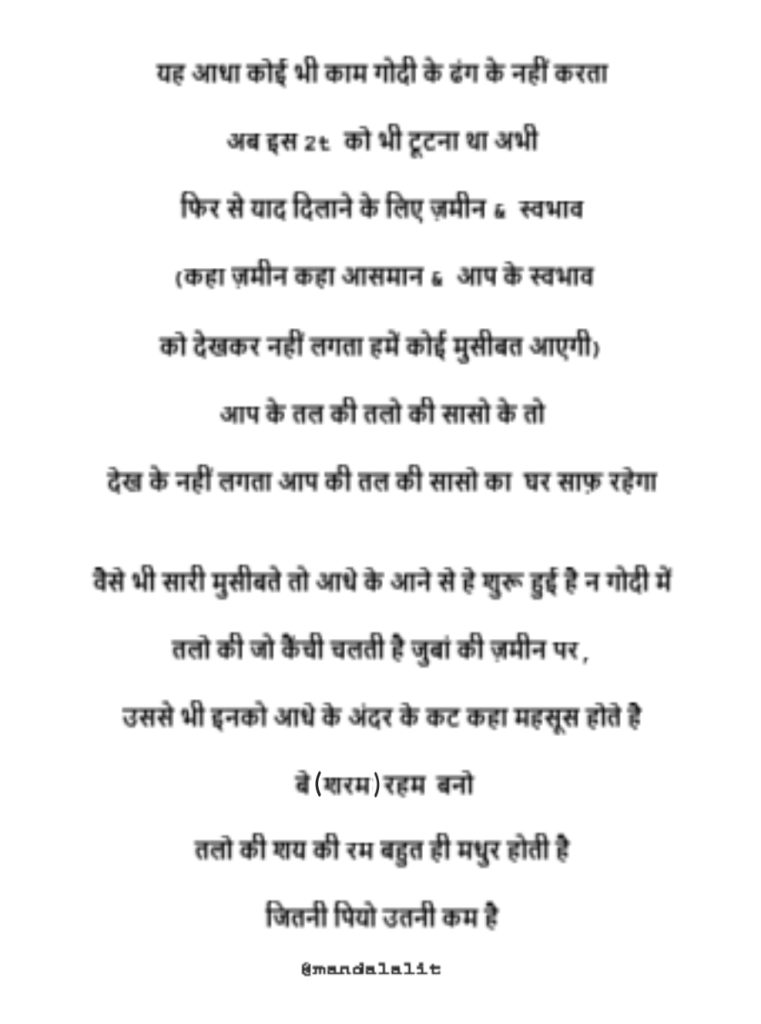 यह आधा कोई भी काम गोदी के ढंग के नहीं करता
अब इस 2t को भी टूटना था अभी
फिर से याद दिलाने के लिए ज़मीन & स्वभाव
(कहा ज़मीन कहा आसमान & आप के स्वभाव
को देखकर नहीं लगता हमें कोई मुसीबत आएगी)
आप के तल की तलो की सासो के तो
देख के नहीं लगता आप की तल की सासो का घर साफ़ रहेगा
वैसे भी सारी मुसीबते तो आधे के आने से हे शुरू हुई है न गोदी में
तलो की जो कैंची चलती है जुबां की ज़मीन पर,
उससे भी इनको आधे के अंदर के कट कहा महसूस होते है
बे(शरम)रहम बनो
तलो की शय की रम बहुत ही मधुर होती है
जितनी पियो उतनी कम है
@mandalalit